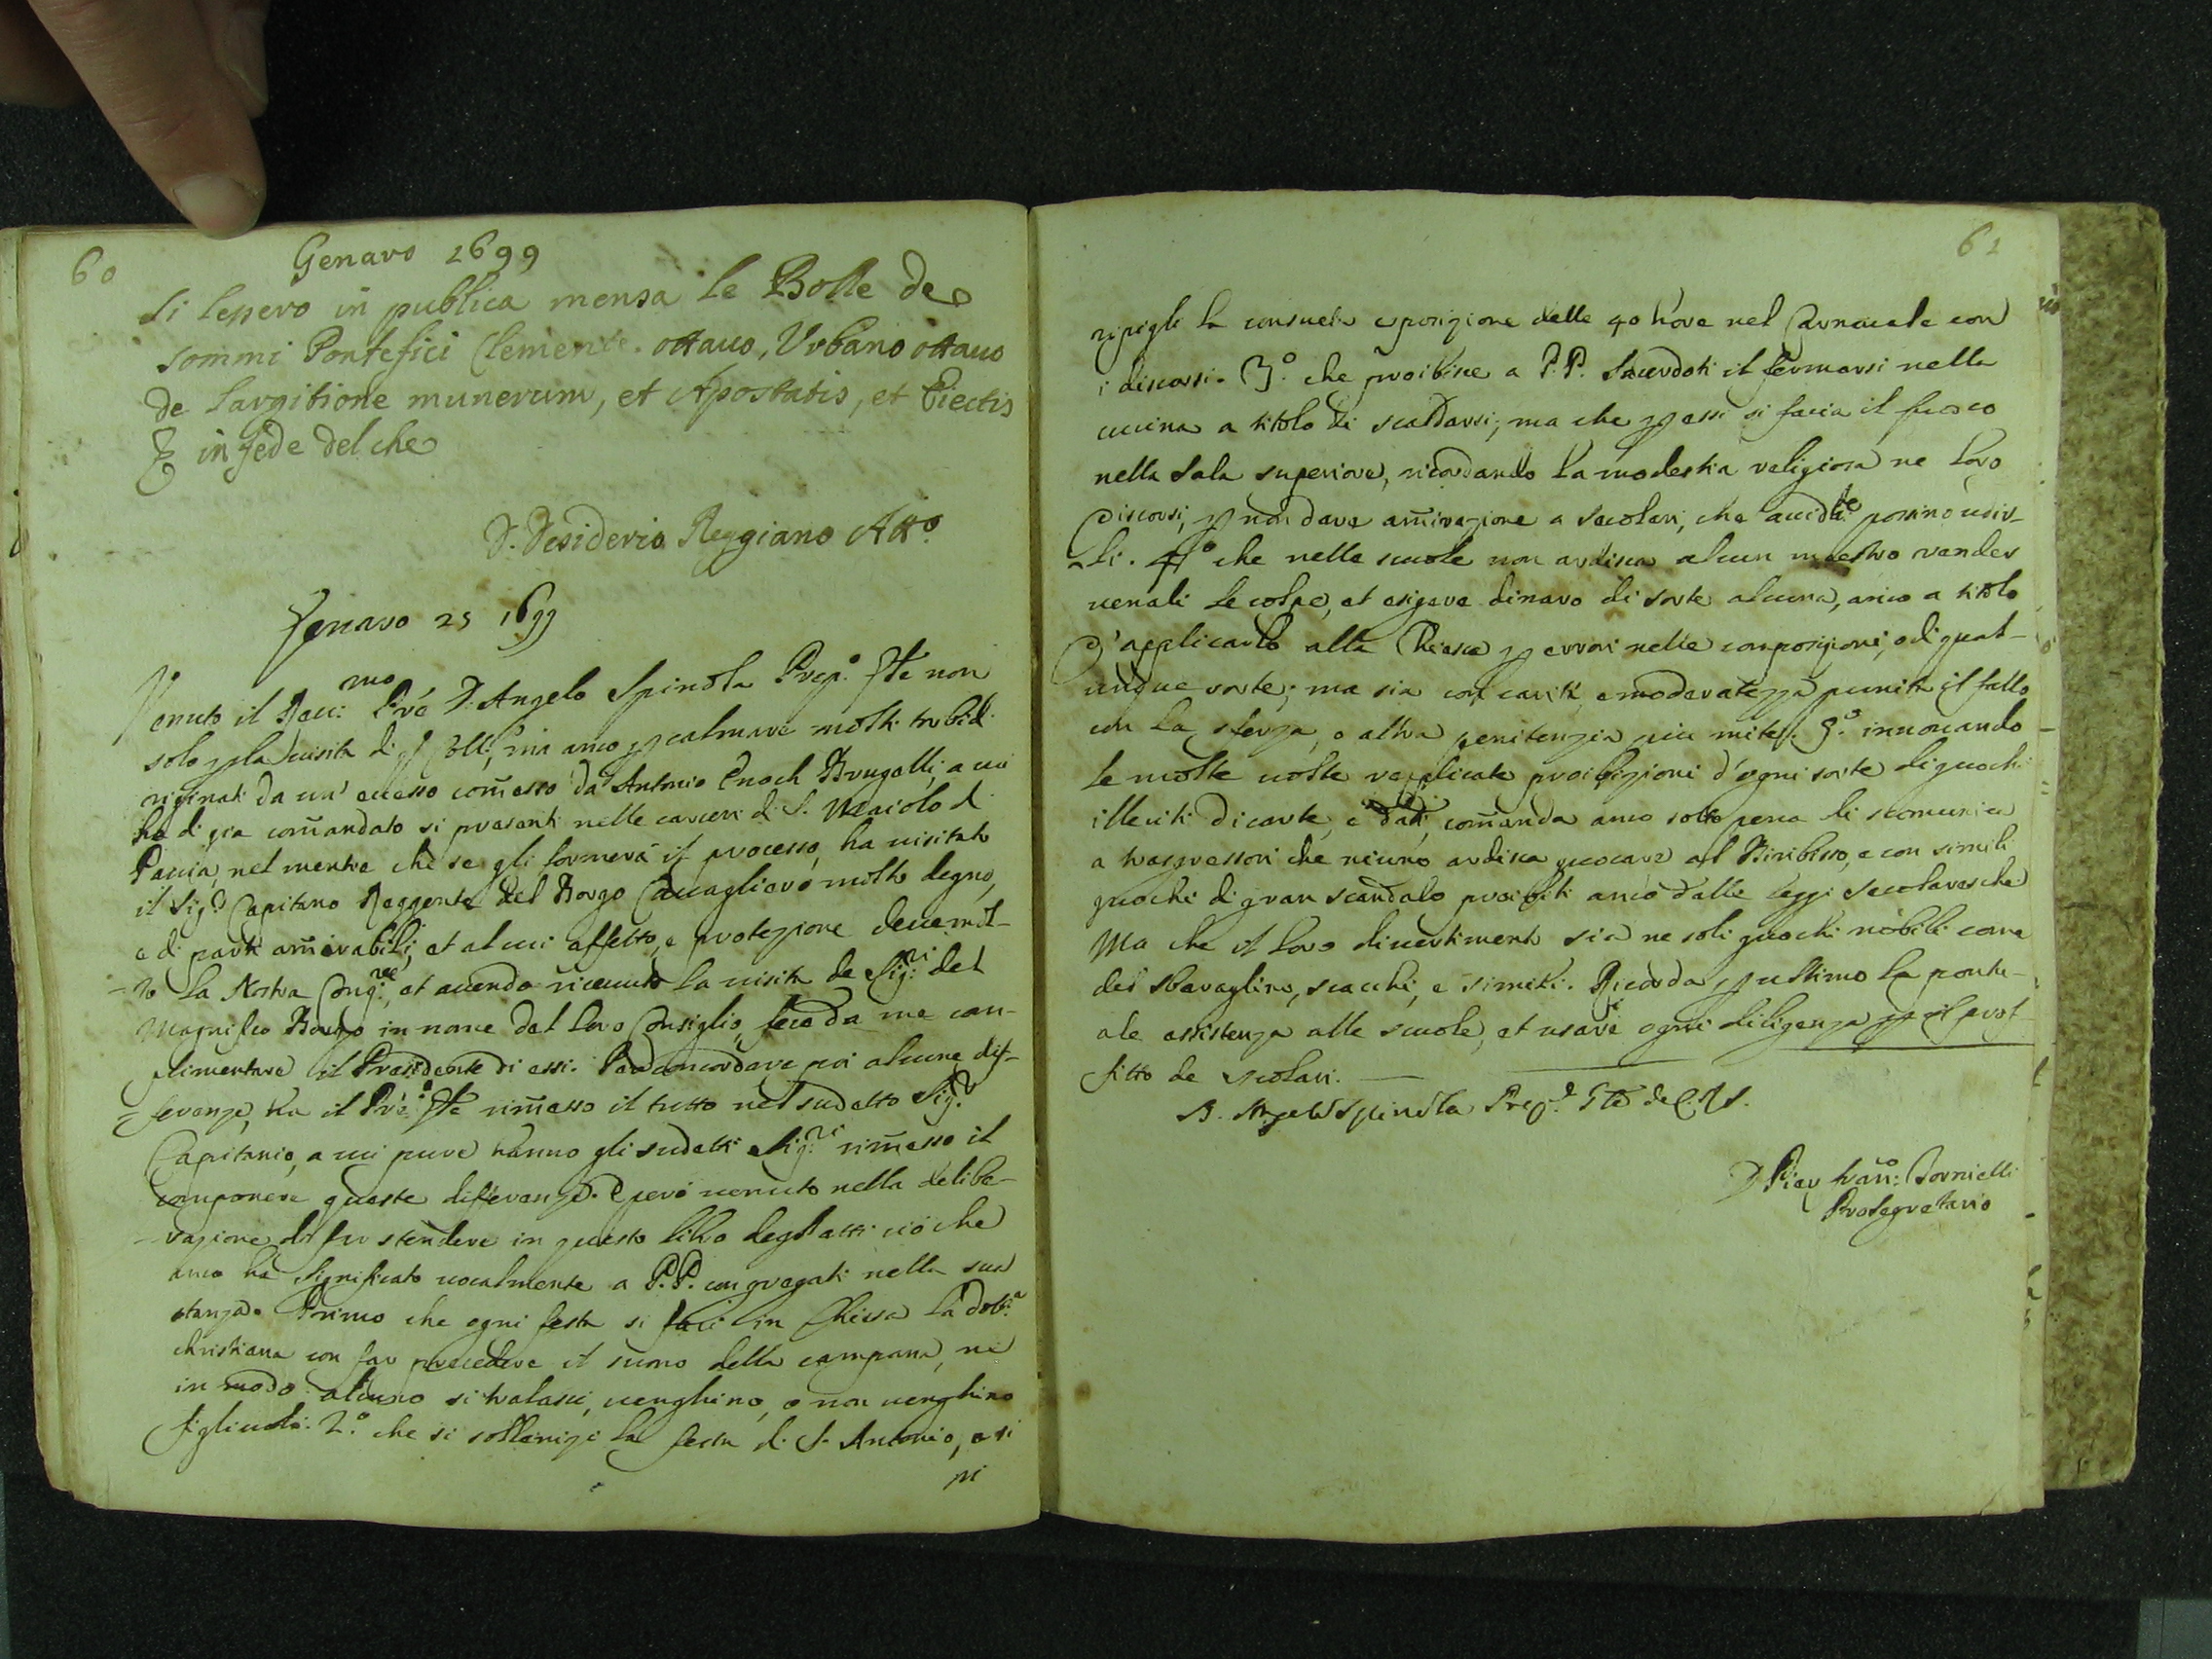 60
Genaro 1699
Si lessero in publica mensa le Bolle de
sommi Pontefici Clemente ottavo, Urbano ottavo
de largitione munerum, et Apostatis, et Eiectis
& in fede del che
D. Desiderio Reggiano Atto.
Genaro 25 1699
Venuto il Reu.mo Pre D. Angelo Spinola Prep.o Gle non
solo p la visita di q Coll.o, ma anco p calmare molti torbidi
originati da un' ecesso comesso da Antonio Enoch Brugalli, a cui
ha di gia comandato si presenti nelle carceri di S. Maiolo di
Pauia, nel mentre che se gli formerà il processo, ha uisitato
il Sig.r Capitano Reggente del Borgo Cauagliero molto degno,
e di parti amirabili, et al cui affetto, e protezione deue mol-
-to la Nostra Cong.ne, et auendo riceuuto la uisita de Sig.ri del
Magnifico Borgo in nome del loro Consiglio, fece da me com-
plimentare il Presidente di essi. Per concordare poi alcune dif-
-ferenze, ha il Pre Gle rimesso il tutto nel sudetto Sig.r
Capitanio, a cui pure hanno gli sudetti Sig.ri rimesso il
componere queste differenze. E però uenuto nella delibe-
-razione di far stendere in questo libro degl'atti ciò che
anco ha significato uocalmente a P.P. congregati nella sua
stanza. Primo che ogni festa si facci in Chiesa la dott.a
christiana con far precedere il suono della campana, ne
in modo alcuno si tralasci, uenghino, o non uenghino
figliuoli. 2.o che si sollenizi la festa di S. Antonio, e si
ri
61
ripigli la consueta esposizione delle 40 hore nel Carneuale con
i discorsi. 3.o che proibisce a P.P. Sacerdoti il fermarsi nella
cucina a titolo di scaldarsi; ma che p essi si facia il fuoco
nella Sala superiore, ricordando la modestia religiosa ne loro
Discorsi, p non dare amirazione a secolari, che possino udir-
-li. 4.o che nelle scuole non ardisca alcun maestro render
uenali le colpe, et esigere dinaro di sorte alcuna, anco a titolo
d'applicarlo alla Chiesa p errori nelle composizioni, o di qual-
unque sorte; ma sia con carità, e moderatezza punito il fallo
con la sferza, o altra penitenzia piu mite. 5.o innouando
le molte uolte replicate proibizioni d'ogni sorte di giuochi
illeciti di carte, e dadi, comanda anco sotto pena di scomunica
a trasgressori che niuno ardisca giuocare al Biribisso, e con simili
giuochi di gran scandalo proibiti anco dalle leggi Secolaresche
Ma che il loro diuertimento sia ne soli giuochi nobili come
del sbaraglino, scacchi, e simili. Ricorda p ultimo la pontu-
ale assistenza alle scuole, et usare ogni diligenza p il prof-
fitto de scolari.
D. Angelo Spinola Prep.o Gle de C. R. S.
D Pier Fran.co Tornielli
Prosegretario